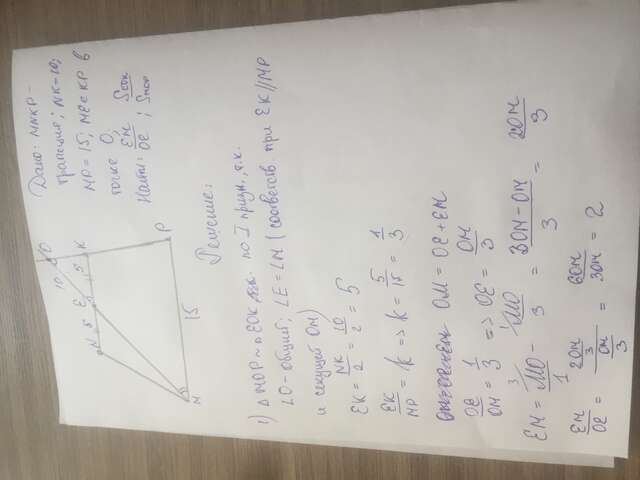 10 O
N 5 E 5 K
M 15 P
Дано: MNKP-
трапеция; NK-10;
MP = 15; ME ∈ KP в
точке O;
Найти: EM/OE ; S_EOK/S_MOP
Решение:
1) △ MOP ~ △ EOK по I призн., т.к.
∠O - общий; ∠E = ∠M (соответств. при EK//MP
и секущей OM)
EK = NK/2 = 10/2 = 5
EK/MP = k => k = 5/15 = 1/3
OM = OE + EM
OE/OM = 1/3 => OE = OM/3
EM = MO/1 - MO/3 = 3OM - OM/3 = 2OM/3
EM/OE = 2OM/3 / OM/3 = 6OM/3OM = 2